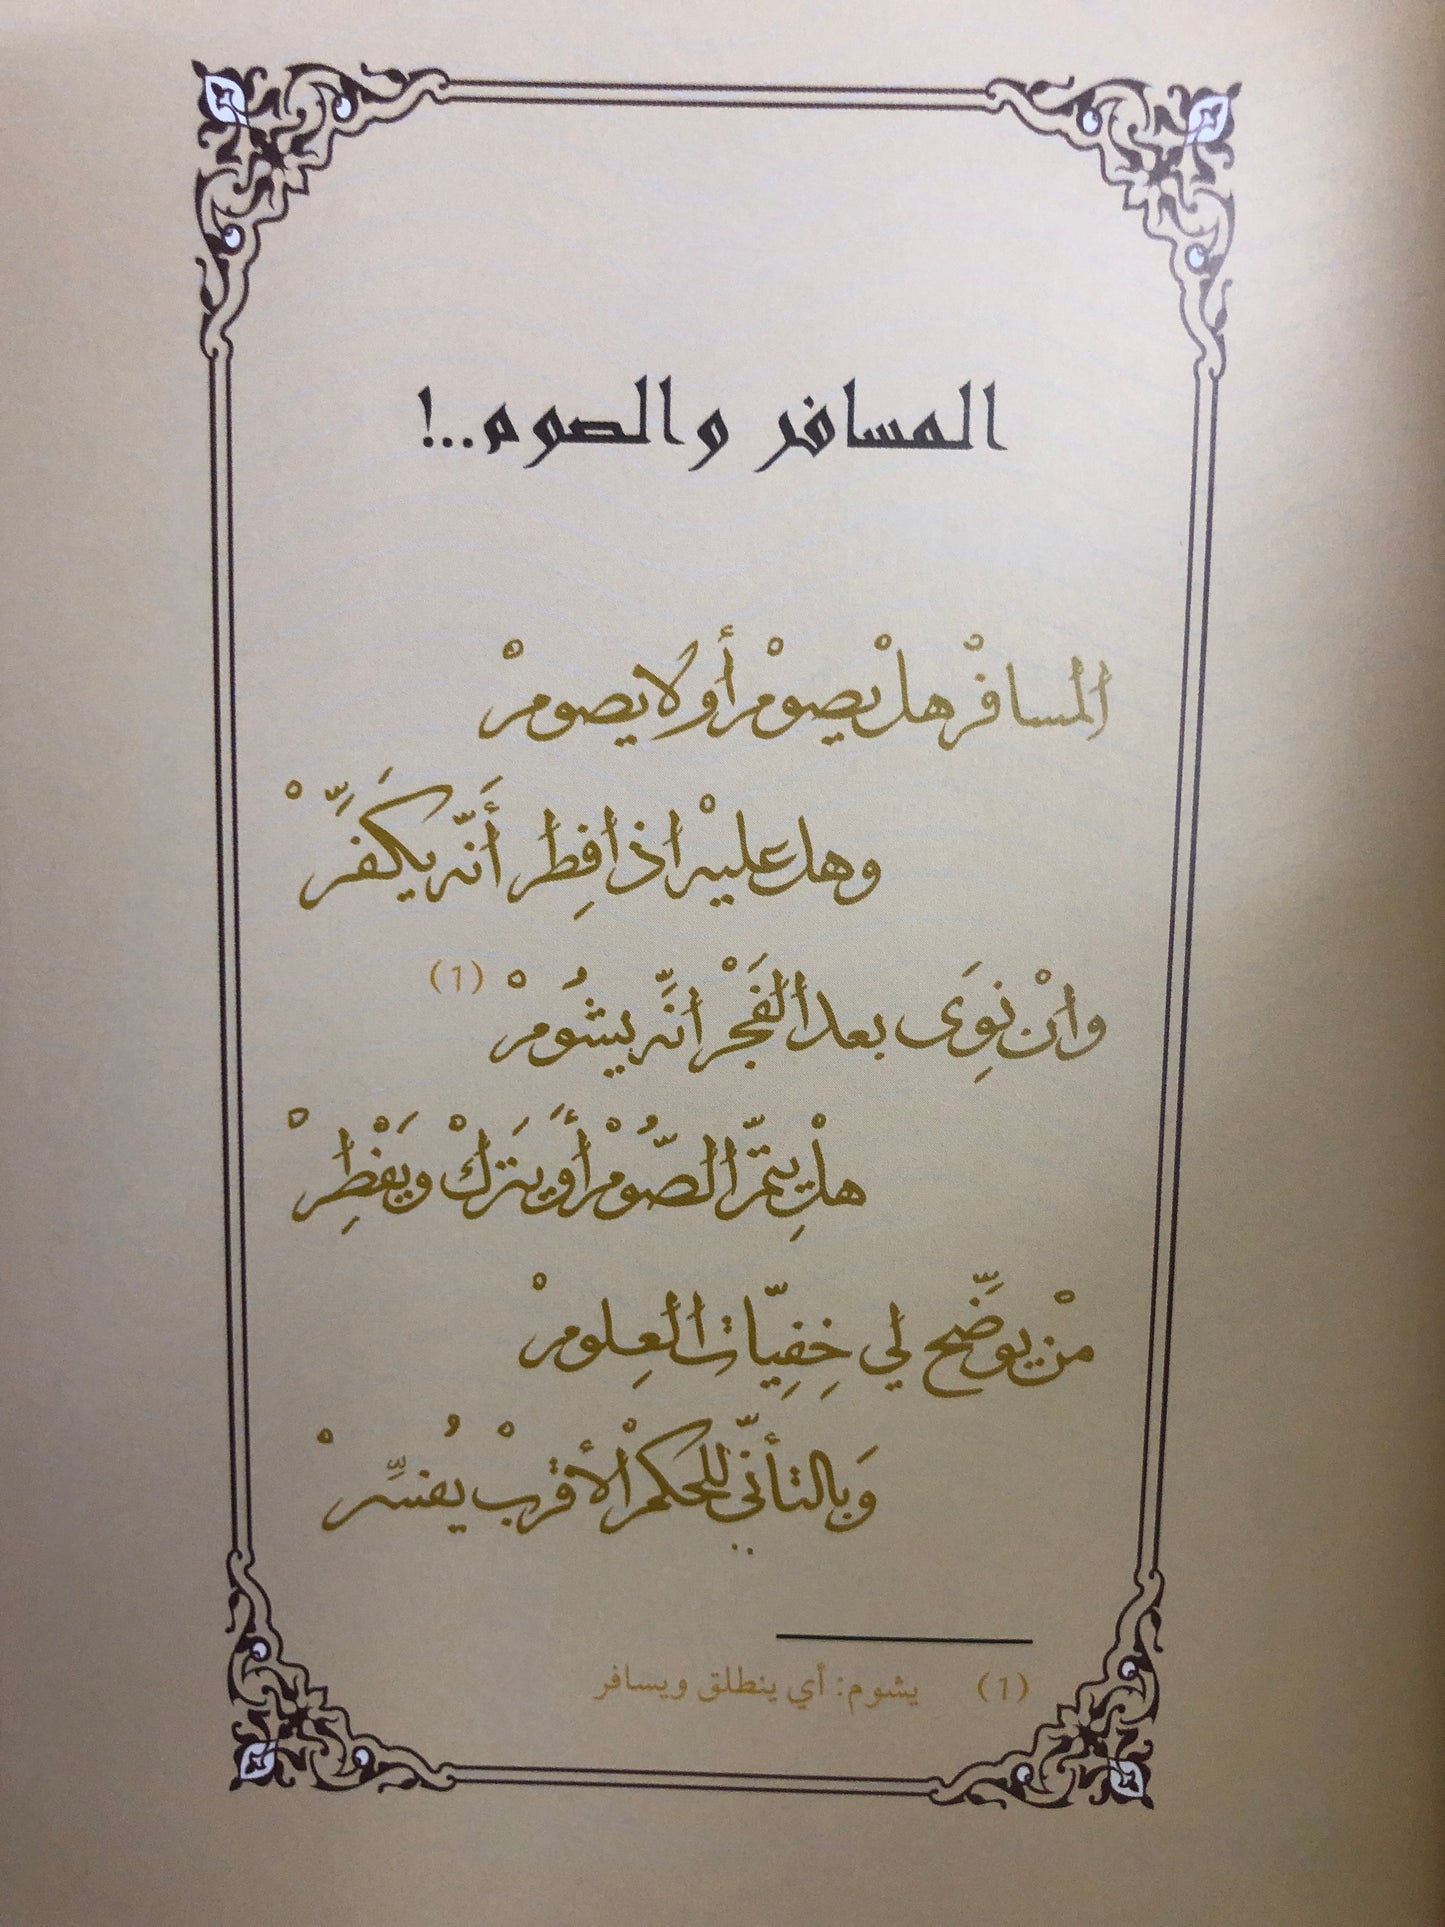 المسافر والصوم...!
المسافرْ هلْ يصومْ أو لا يصومْ
وهل عليهْ اذا افِطر أَنّه يكَفِّرْ
وانْ نِوَى بعد الفَجْر انَّه يشُومْ (1)
هلْ يِتمّ الصّوُمْ أَو يَتركْ ويَفْطِرْ
منْ يوَضّح لي خِفِيّات العِلومْ
وَبالتأنّي للحَكمْ الأقربْ يفُسِّرْ
(1) يشوم: أي ينطلق ويسافر